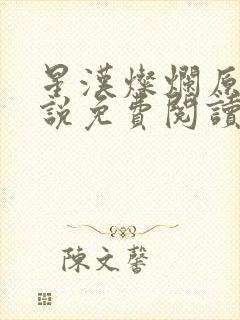 星漢燦爛原
說免費閱讀
陳文馨